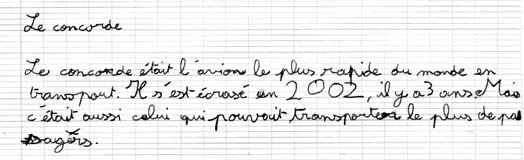 Le concorde
Le concorde était l'avion le plus rapide du monde en
transport. Il s'est écrasé en 2002, il y a 3 ans Mais
c'était aussi celui qui pouvait transporter le plus de pas
sagérs.